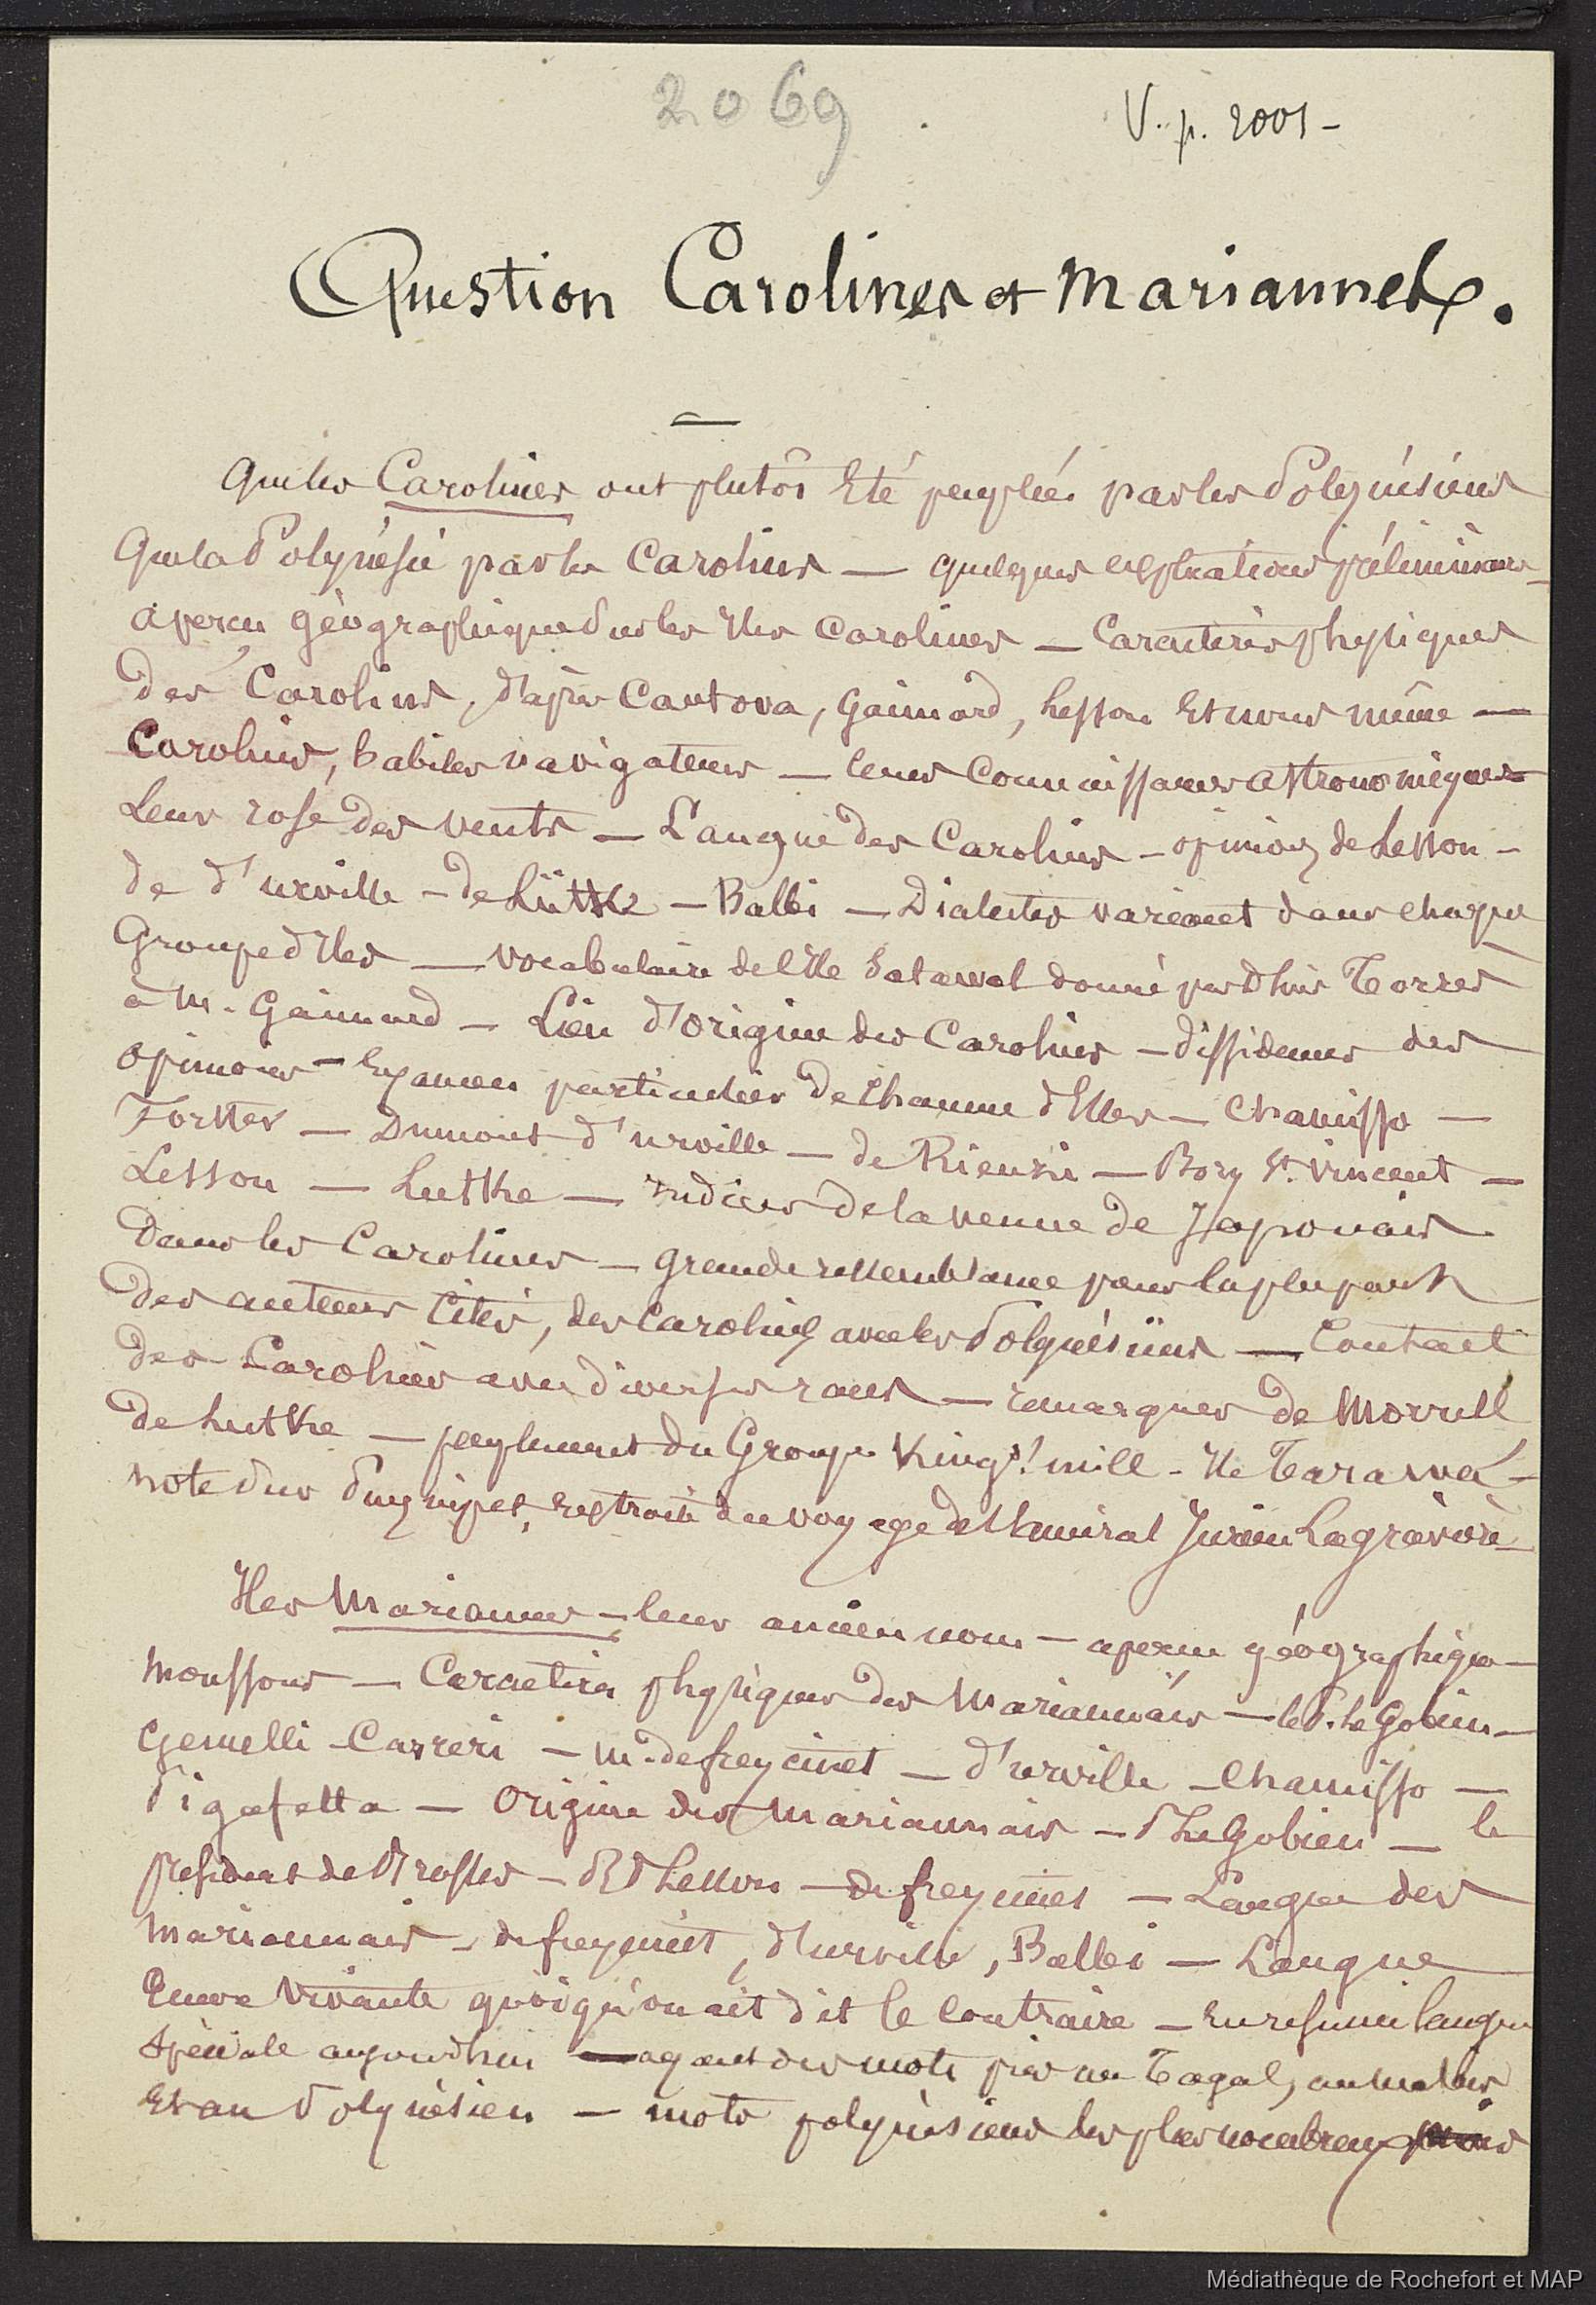 2069
V. p. 2001 -
Question Carolines et Mariannes.
Que les Carolines ont plutôt été peuplées par les Polynésiens
que la Polynésie par les Carolins — quelques explications préliminaires —
aperçu géographique sur les Iles Carolines — Caractères physiques
des Carolins, d'après Cantova, Gaimard, Lesson et nous même —
Carolins, habiles navigateurs — leurs connaissances astronomiques
Leur rose des vents — Langue des Carolins - opinion de Lesson -
de d'urville - de Lütke - Balbi — Dialectes varient dans chaque
Groupe d'Iles — vocabulaire de l'Ile Satawal donné par Dn Luis Torres
à M. Gaimard — Lieu d'origine des Carolins - dissidence des
opinions - Examen particulier de chacune d'Elles — Chamisso —
Forster — Dumont d'urville — de Rienzi — Bory St. Vincent —
Lesson — Lutke — indices de la venue de Japonais
Dans les Carolines — grande ressemblance pour la plupart
des auteurs cités, des Carolins avec les Polynésiens — Contact
des Carolins avec diverses races — remarques de Morrell
de Lutke — peuplement du Groupe King's mill - Ile Tarawa -
note sur Pouynipet, extraite du voyage de l'amiral Jurien Lagravière
Iles Mariannes - leur ancien nom — aperçu géographique —
moussons — Caractères physiques des Mariannais — le P. Le Gobien —
Gemelli - Carreri — M. de freycinet — d'urville - Chamisso —
Pigafetta — Origine des Mariannais — P. Le Gobien — le
président de Brosses - R P Lesson — de freycinet — Langue des
Mariannais - de freycinet, d'urville, Balbi — Langue
Encore vivante quoiqu'on ait dit le contraire — En résumé langue
spéciale aujourd'hui — ayant des mots pris au Tagal, au malais
Et au Polynésien — mots polynésiens les plus nombreux
Médiathèque de Rochefort et MAP